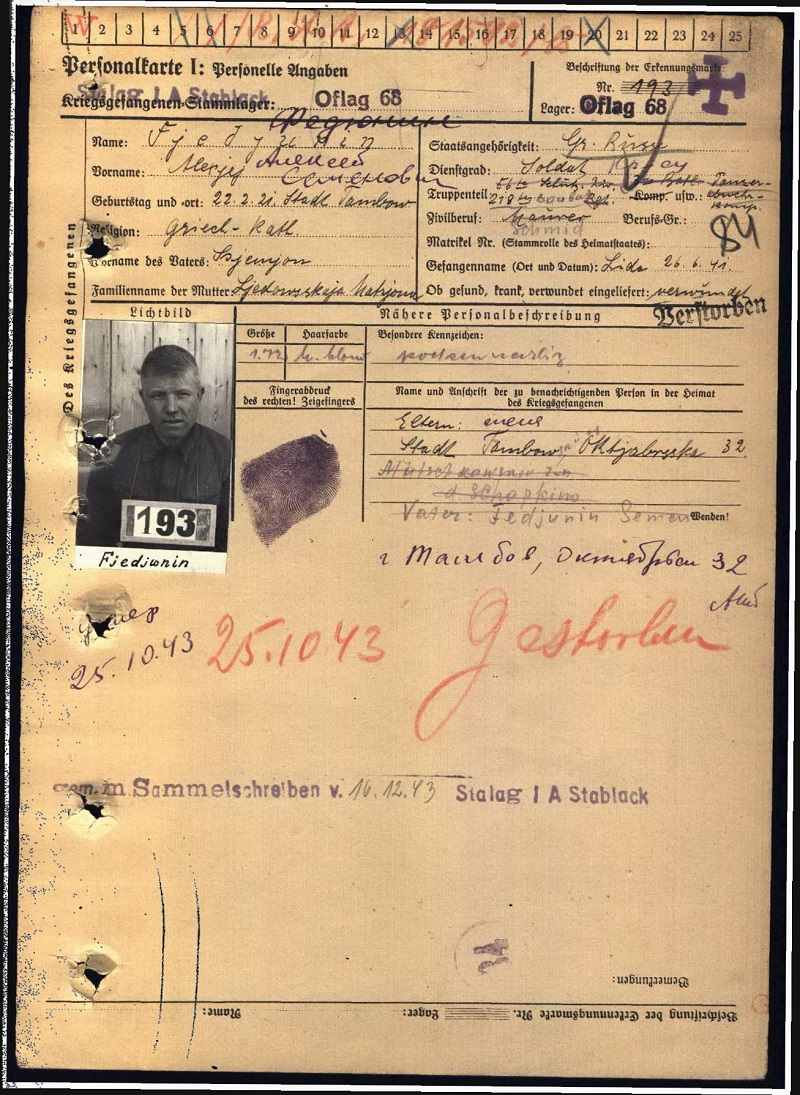 1 2 3 4 5 6 7 8 9 10 11 12 13 14 15 16 17 18 19 20 21 22 23 24 25
Personalkarte I: Personelle Angaben
Beschriftung der Erkennungsmarke
Nr. 193
Stalag I A Stablack
Kriegsgefangenen-Stammlager: Oflag 68
Lager: Oflag 68
Федюнин
Des Kriegsgefangenen
Name: Fjedjunin
Vorname: Alexjej Алексей
Семенович
Geburtstag und -ort: 22.2.21. Stadt Tambow
Religion: Griech-Kath.
Vorname des Vaters: Ssjemjon
Familienname der Mutter:
Staatsangehörigkeit: Gr. Russe
Dienstgrad: Soldat
Truppenteil: Komp. usw.:
Zivilberuf: Maurer Berufs-Gr.:
Schmid
84
Matrikel Nr. (Stammrolle des Heimatstaates):
Gefangenname (Ort und Datum): Lida 26.6.41.
Ob gesund, krank, verwundet eingeliefert: verwundet
Verstorben
Lichtbild
Nähere Personalbeschreibung
Größe
Haarfarbe
Besondere Kennzeichen:
1.72
pockennarbig
Fingerabdruck
des rechten! Zeigefingers
Name und Anschrift der zu benachrichtigenden Person in der Heimat
des Kriegsgefangenen
Eltern:
Stadt Tambow, Oktjabryska 32.
Vater: Fedjunin Semen
Wenden!
193
Fjedjunin
г Тамбов, 32
умер
25.10.43
25.10.43 Gestorben
gem. m Sammelschreiben v. 16.12.43 Stalag I A Stablack
Bemerkungen:
Name:
Beschriftung der Erkennungsmarke Nr. Lager: